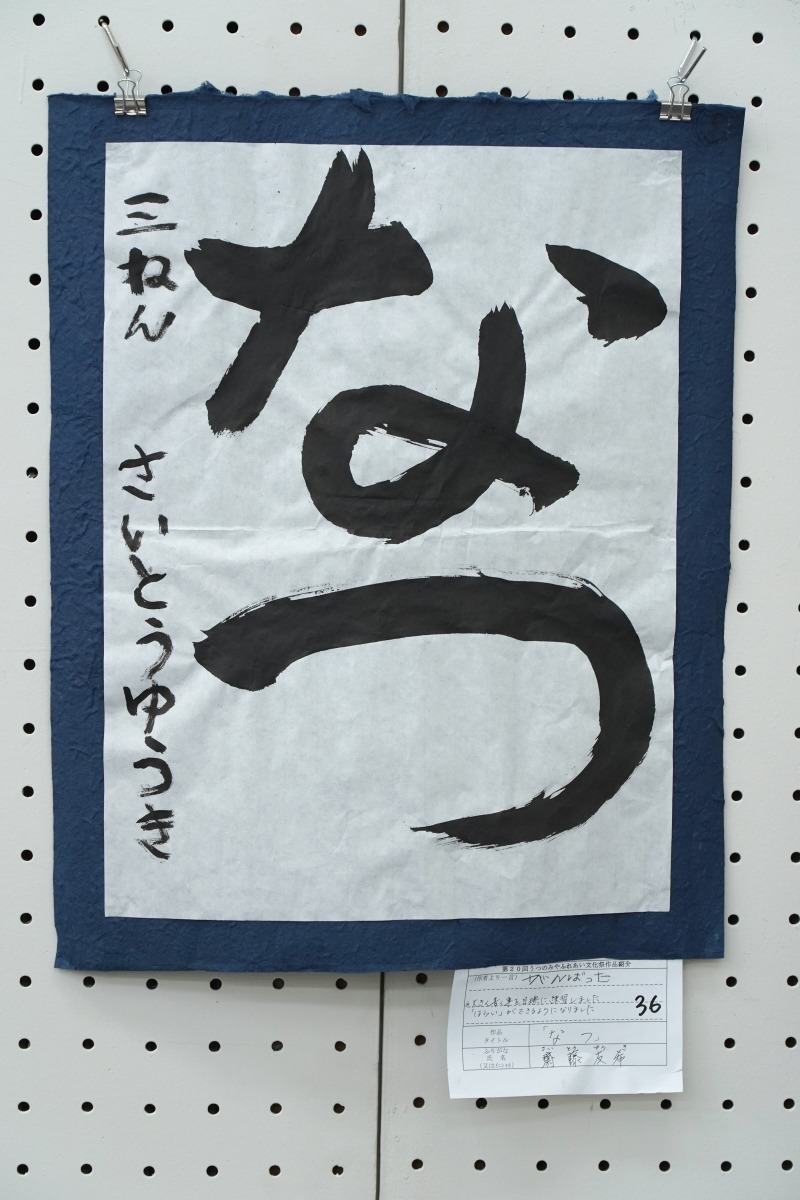 なつ
三ねん さいとうゆうき
第20回うつのみやふれあい文化祭作品紹介
(作者より一言) がんばった
大きく書く事を目標に練習しました
「はらい」ができるようになりました
36
作品タイトル 「なつ」
ふりがな さい とう ゆう き
氏名 齋藤友希